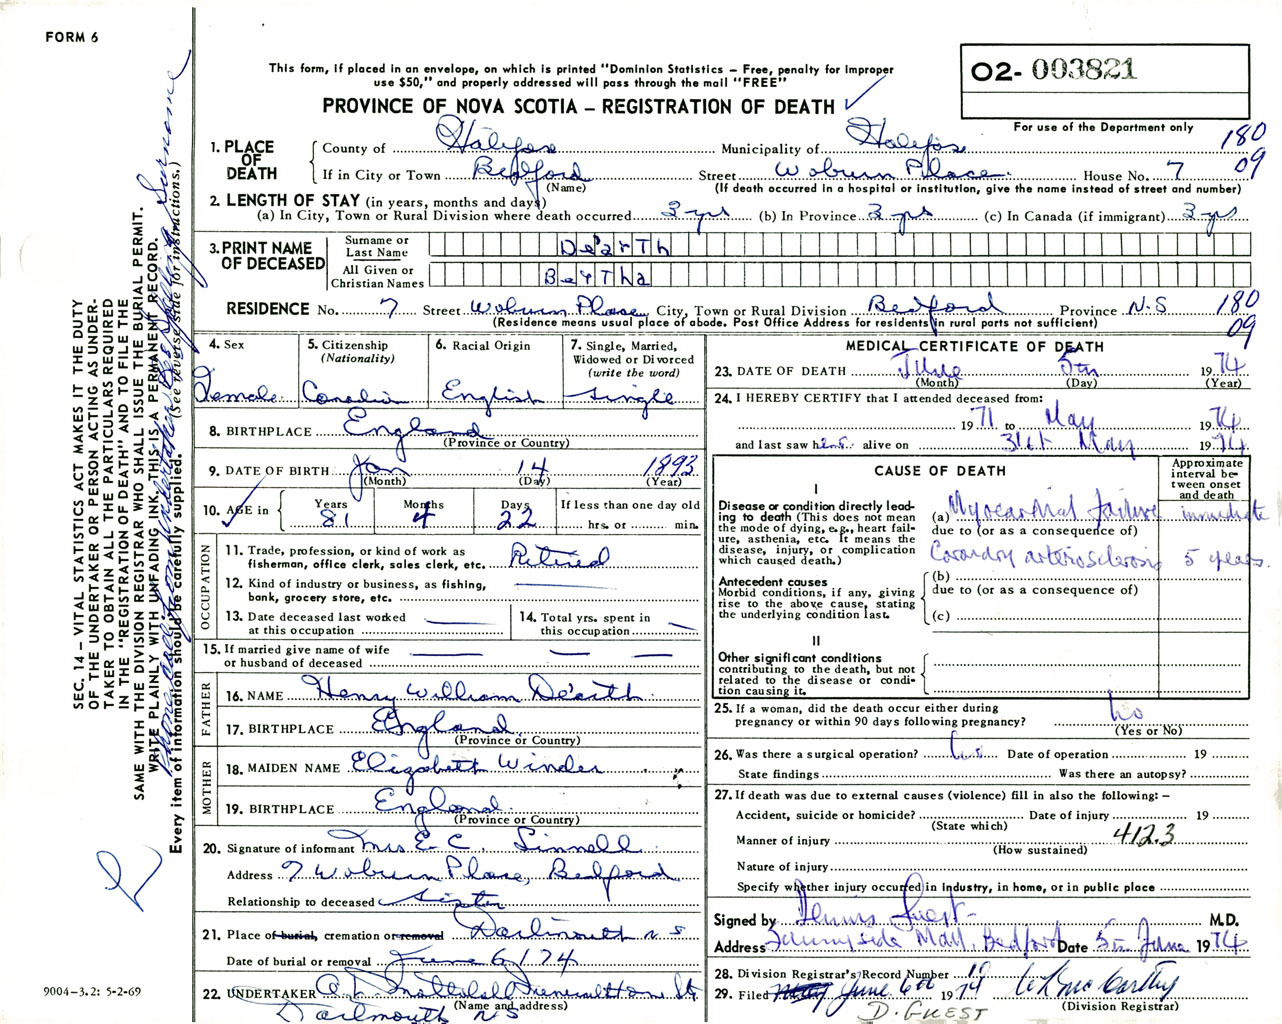 FORM 6
This form, if placed in an envelope, on which is printed "Dominion Statistics – Free, penalty for improper
use $50," and properly addressed will pass through the mail "FREE"
PROVINCE OF NOVA SCOTIA – REGISTRATION OF DEATH
O2- 003821
For use of the Department only
180
09
1. PLACE OF DEATH
County of Halifax Municipality of Halifax
If in City or Town Bedford Street Woburn Place House No. 7
(Name) (If death occurred in a hospital or institution, give the name instead of street and number)
2. LENGTH OF STAY (in years, months and days)
(a) In City, Town or Rural Division where death occurred 3 yrs (b) In Province 3 yrs (c) In Canada (if immigrant) 3 yrs
3. PRINT NAME OF DECEASED
Surname or Last Name De'arTh
All Given or Christian Names BerTha
RESIDENCE No. 7 Street Woburn Place City, Town or Rural Division Bedford Province N.S
180
09
(Residence means usual place of abode. Post Office Address for residents in rural parts not sufficient)
4. Sex
Female
5. Citizenship
(Nationality)
Canadian
6. Racial Origin
English
7. Single, Married,
Widowed or Divorced
(write the word)
Single
8. BIRTHPLACE England
(Province or Country)
9. DATE OF BIRTH Jan 14 1893
(Month) (Day) (Year)
10. AGE in Years 81 Months 4 Days 22
If less than one day old
hrs. or min.
OCCUPATION
11. Trade, profession, or kind of work as
fisherman, office clerk, sales clerk, etc. Retired
12. Kind of industry or business, as fishing,
bank, grocery store, etc.
13. Date deceased last worked
at this occupation
14. Total yrs. spent in
this occupation
15. If married give name of wife
or husband of deceased
FATHER
16. NAME Henry William De'arth
17. BIRTHPLACE England
(Province or Country)
MOTHER
18. MAIDEN NAME Elizabeth Winder
19. BIRTHPLACE England
(Province or Country)
20. Signature of informant Mrs E. C. Linnell
Address 7 Woburn Place, Bedford
Relationship to deceased Sister
21. Place of burial, cremation or removal Dartmouth N S
Date of burial or removal June 6/74
22. UNDERTAKER Funeral Home
(Name and address)
Dartmouth N S
MEDICAL CERTIFICATE OF DEATH
23. DATE OF DEATH June 5th 1974
(Month) (Day) (Year)
24. I HEREBY CERTIFY that I attended deceased from:
1971 to May 1974
and last saw her alive on 31st May 1974
CAUSE OF DEATH
Approximate
interval be-
tween onset
and death
I
Disease or condition directly lead-
ing to death (This does not mean
the mode of dying, e.g., heart fail-
ure, asthenia, etc. It means the
disease, injury, or complication
which caused death.)
(a) Myocardial failure immediate
due to (or as a consequence of)
Coronary arteriosclerosis 5 years.
Antecedent causes
Morbid conditions, if any, giving
rise to the above cause, stating
the underlying condition last.
(b)
due to (or as a consequence of)
(c)
II
Other significant conditions
contributing to the death, but not
related to the disease or condi-
tion causing it.
25. If a woman, did the death occur either during
pregnancy or within 90 days following pregnancy? No
(Yes or No)
26. Was there a surgical operation? No Date of operation 19
State findings Was there an autopsy?
27. If death was due to external causes (violence) fill in also the following: –
Accident, suicide or homicide? Date of injury 19
(State which)
Manner of injury 412.3
(How sustained)
Nature of injury
Specify whether injury occurred in industry, in home, or in public place
Signed by Dennis Guest M.D.
Address Sunnyside Mall, Bedford Date 5th June 1974
28. Division Registrar's Record Number 19
29. Filed May June 6th 1974
(Division Registrar)
D. GUEST
SEC. 14 – VITAL STATISTICS ACT MAKES IT THE DUTY
OF THE UNDERTAKER OR PERSON ACTING AS UNDER-
TAKER TO OBTAIN ALL THE PARTICULARS REQUIRED
IN THE "REGISTRATION OF DEATH" AND TO FILE THE
SAME WITH THE DIVISION REGISTRAR WHO SHALL ISSUE THE BURIAL PERMIT.
WRITE PLAINLY WITH UNFADING INK. THIS IS A PERMANENT RECORD.
Every item of information should be carefully supplied. (See reverse side for instructions.)
Surname
9004-3.2: 5-2-69